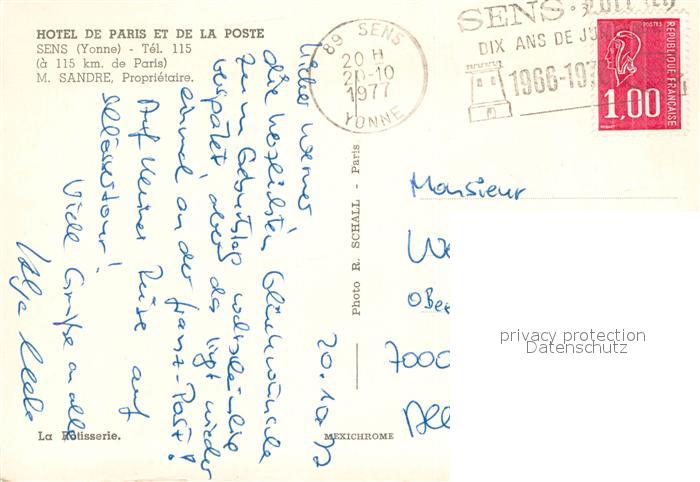 HOTEL DE PARIS ET DE LA POSTE
SENS (Yonne) - Tél. 115
(à 115 km. de Paris)
M. SANDRE, Propriétaire.
89 SENS
20 H
20-10
1977
YONNE
SENS
DIX ANS DE
1966-197
POSTES
REPUBLIQUE FRANÇAISE
1,00
20.10.77
Lieber Werner
die herzlichsten Glückwünsche
zum Geburtstag wahrscheinlich
verspätet aber das liegt wieder
einmal an der franz. Post!
Auf kleiner Reise auf
Schlössertour!
Viele Grüße an alle
Photo R. SCHALL - Paris
Monsieur
We
Obe
7000
All
privacy protection
Datenschutz
La Rôtisserie.
MEXICHROME